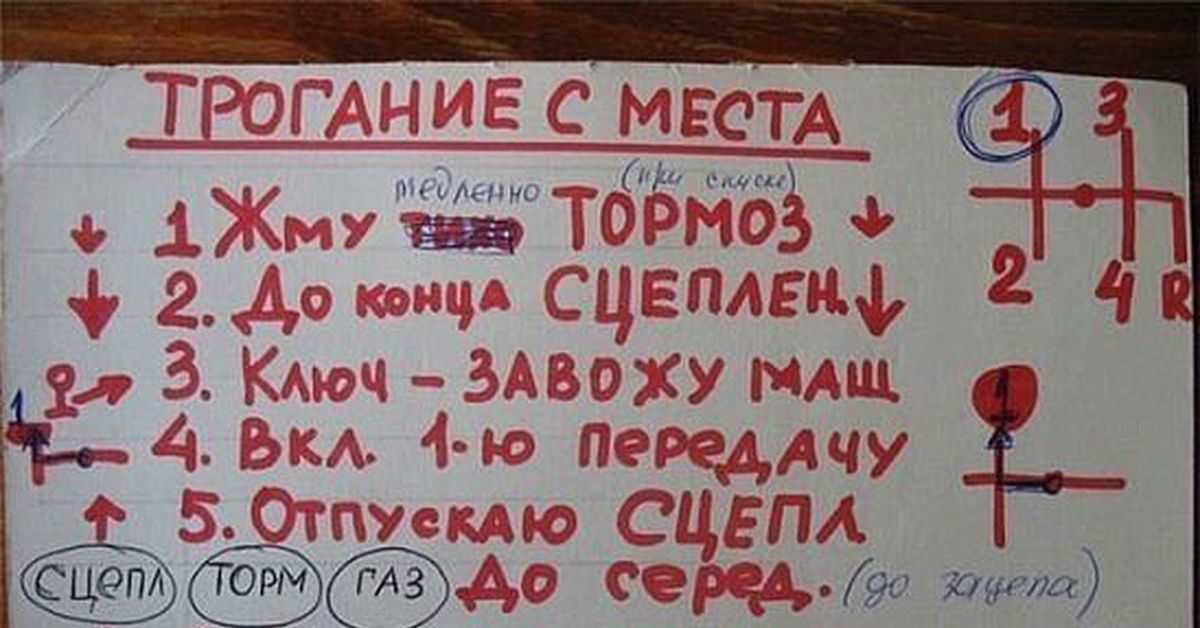 ТРОГАНИЕ С МЕСТА
1 3
медленно (при спуске)
1 Жму ТОРМОЗ
2. До конца СЦЕПЛЕН.
2 4 R
3. Ключ – ЗАВОЖУ МАШ
1
1
4. Вкл. 1-ю передачу
5. Отпускаю СЦЕПЛ
СЦЕПЛ ТОРМ ГАЗ До серед. (до зацепа)